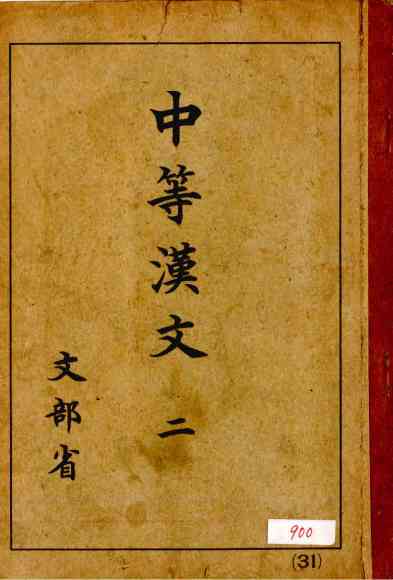 中等漢文 二
文部省
900
(31)